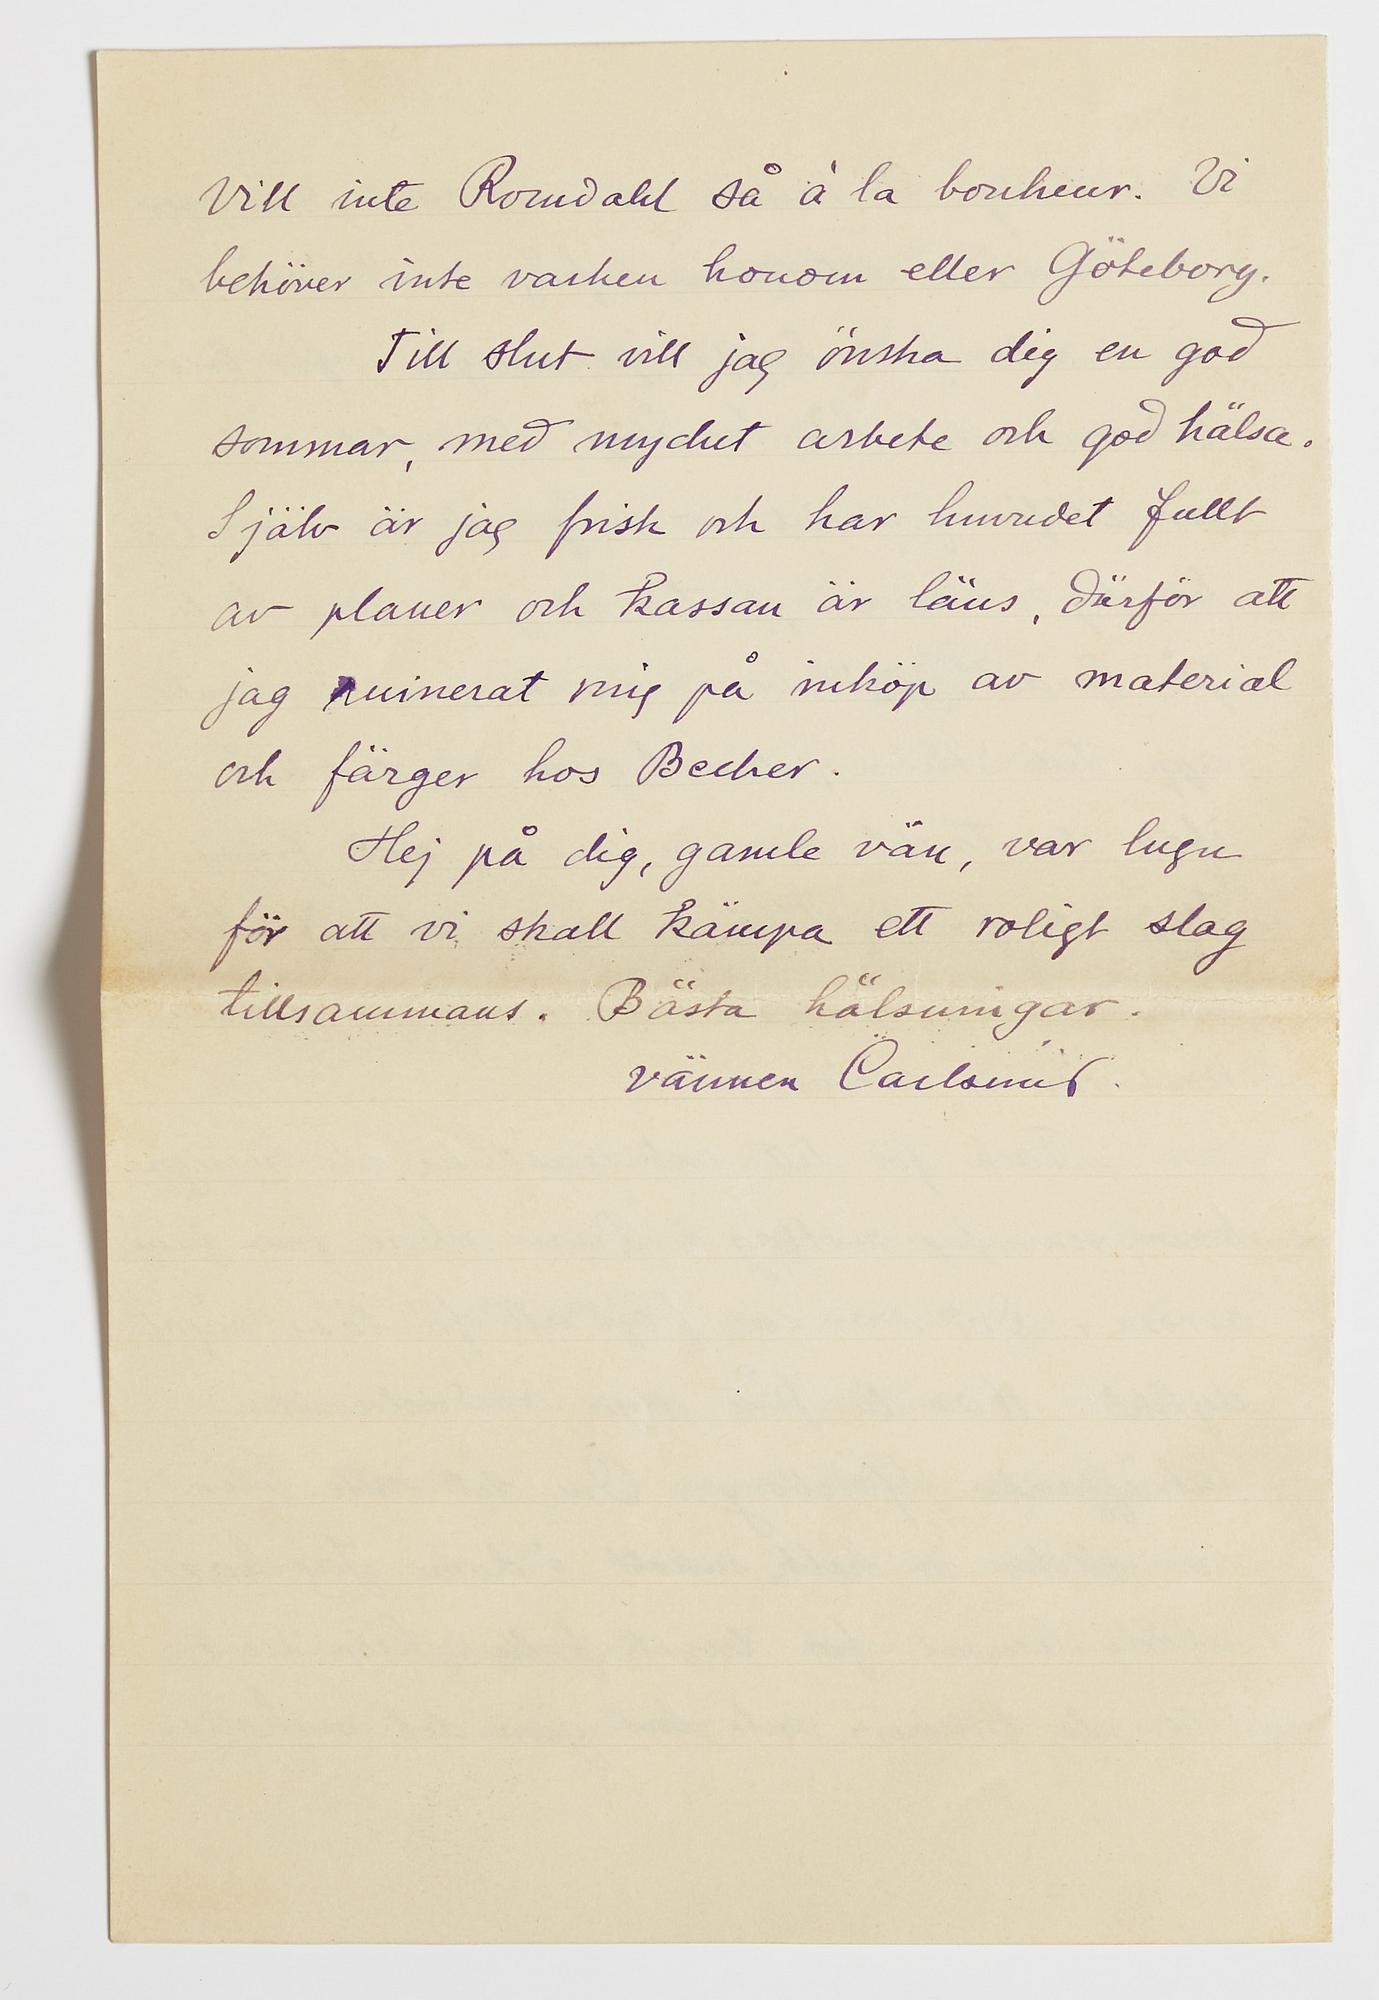 Vill inte Romdahl så à la bonheur. Vi
behöver inte varken honom eller Göteborg.
Till slut vill jag önska dig en god
sommar, med mycket arbete och god hälsa.
Själv är jag frisk och har huvudet fullt
av planer och kassan är läns, därför att
jag ruinerat mig på inköp av material
och färger hos Becker.
Hej på dig, gamle vän, var lugn
för att vi skall kämpa ett roligt slag
tillsammans. Bästa hälsningar.
vännen Carlsund.